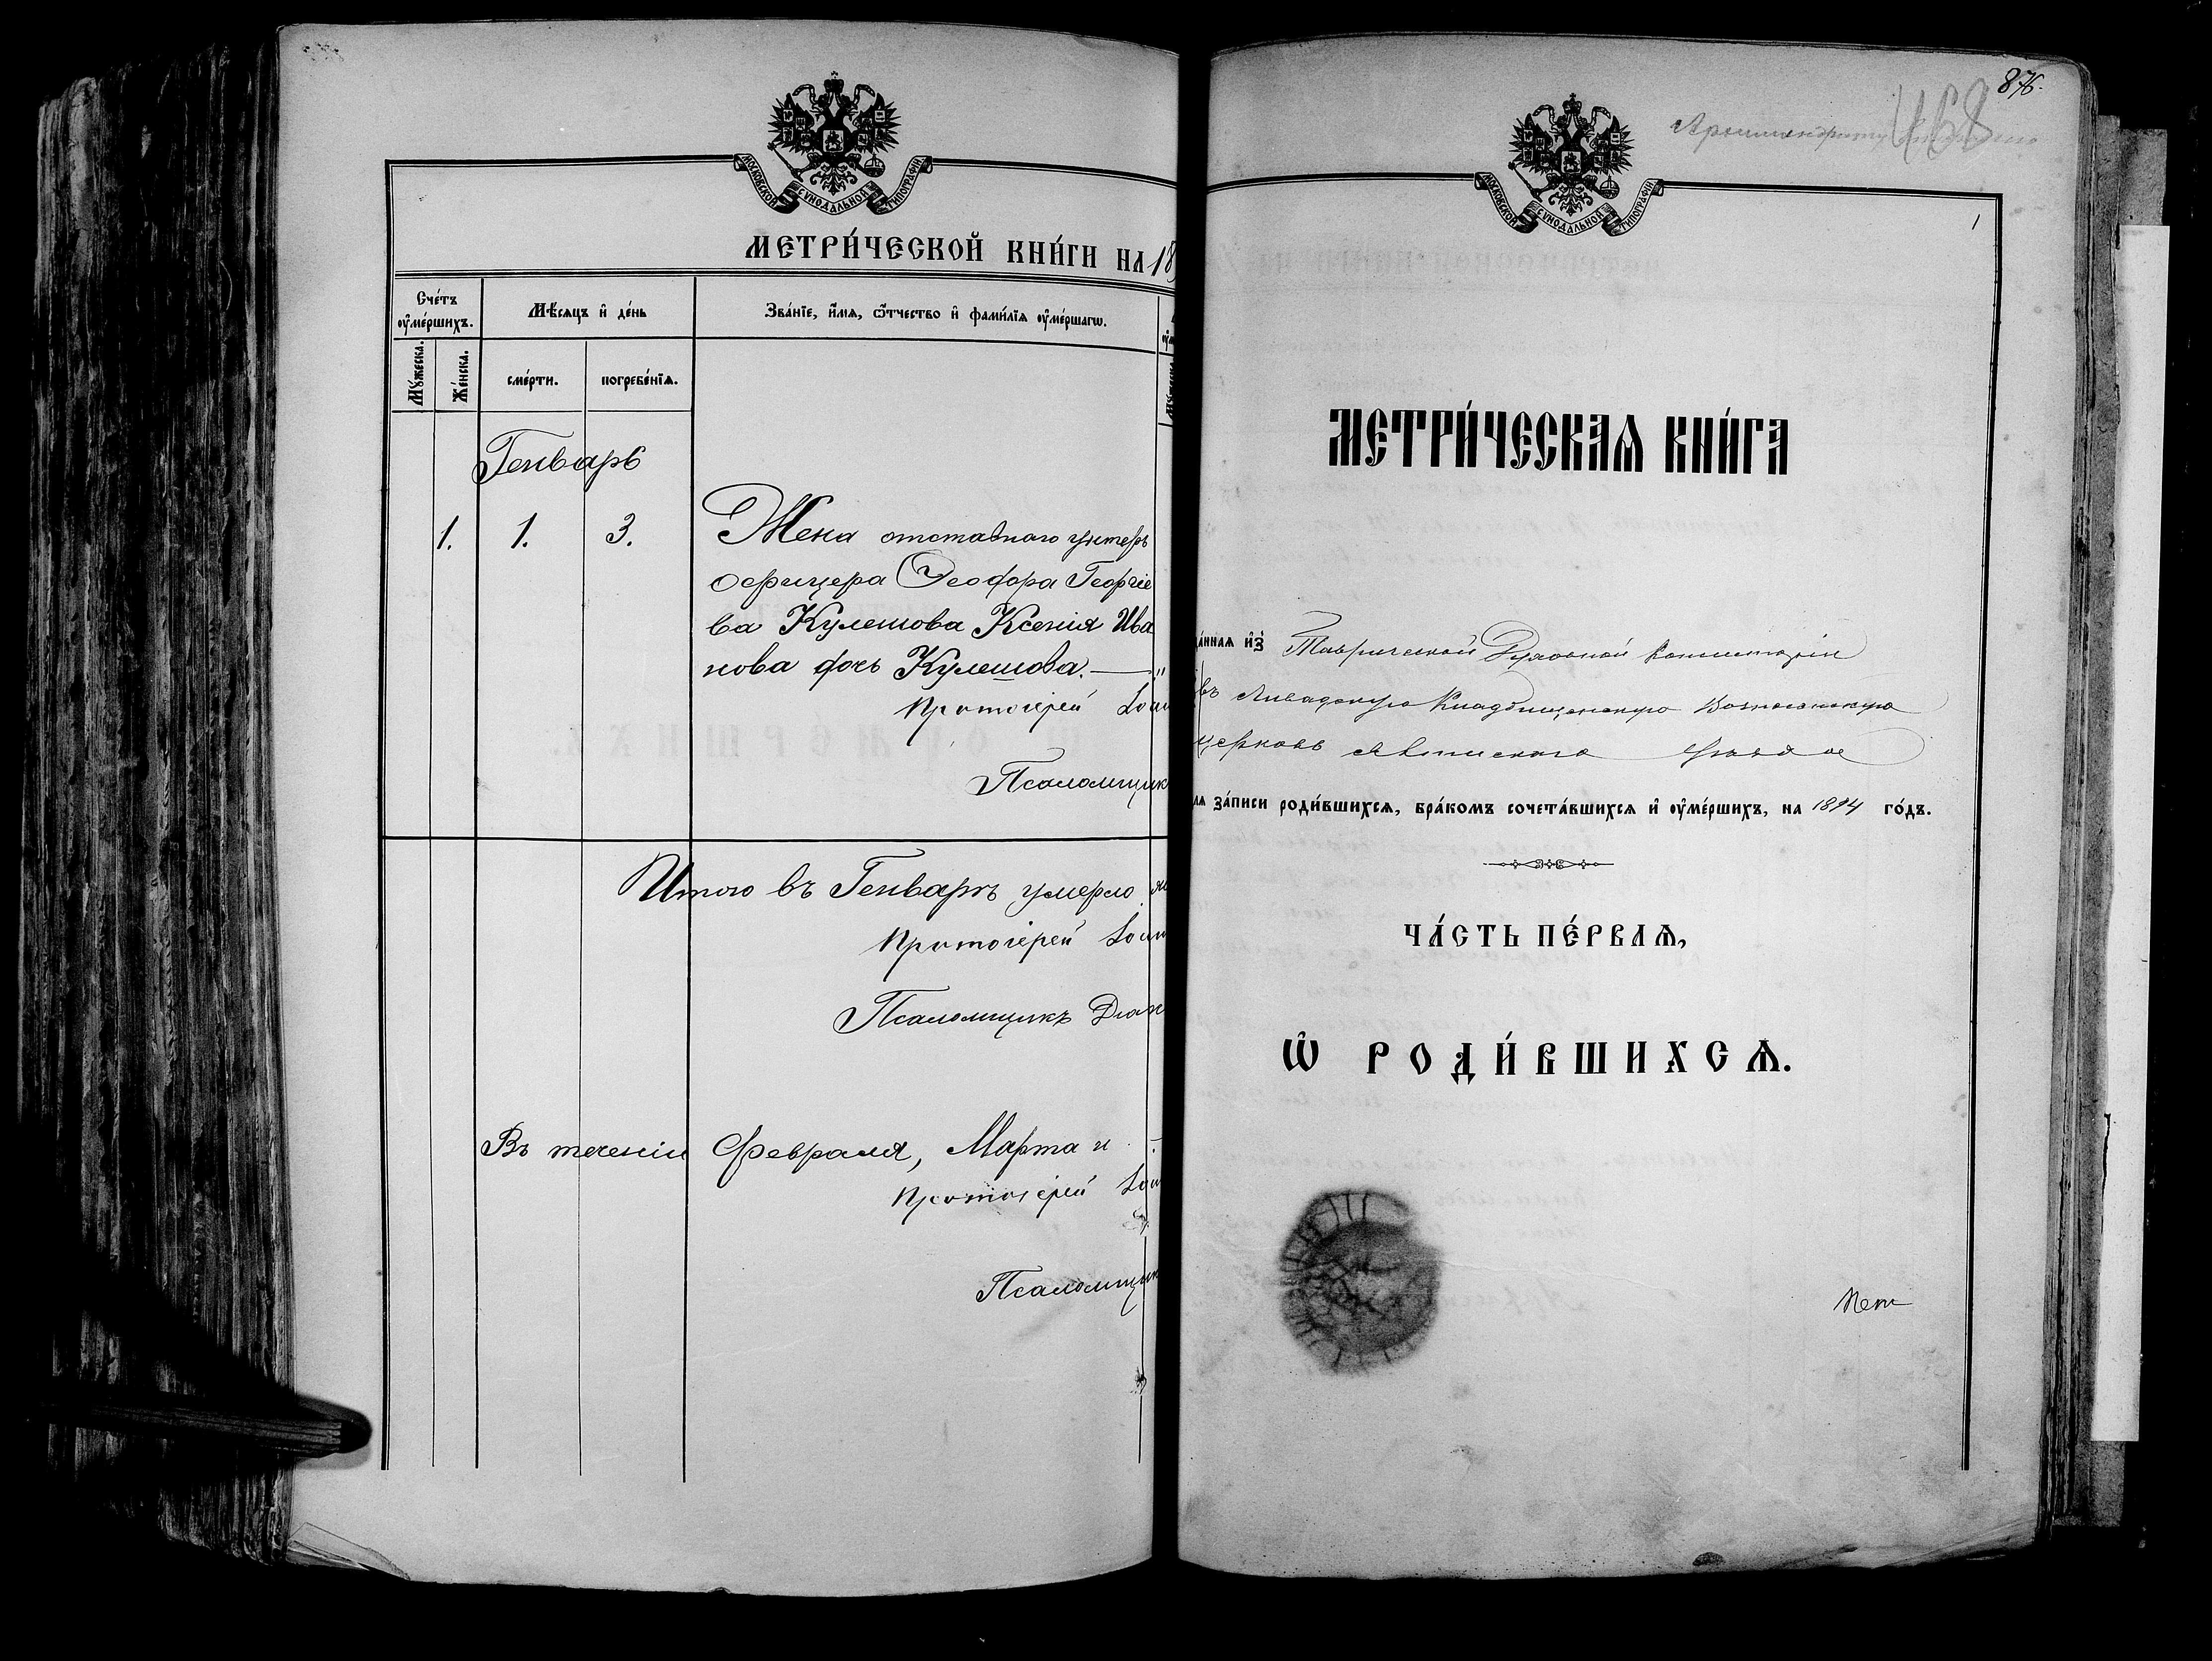 МОСКОВСКОЙ СѴНОДАЛЬНОЙ ТИПОГРАФІИ
МЕТРИ́ЧЕСКОЙ КНИ́ГИ НА 18
Сче́тъ оу҆ме́ршихъ.
Мѣ́сяцъ и҆ де́нь
Зва́нїе, и҆́мѧ, ѻ҆́тчество и҆ фами́лїѧ оу҆ме́ршагѡ.
Му́жеска.
Же́нска.
сме́рти.
погребе́нїѧ.
Генварь
1. 1. 3. Жена отставного унтеръ
офицера Ѳеодора Георгіе
ва Кулешова Ксенія Ива
нова дочь Кулешова. — "
Протоіерей Іоан
Псаломщик
Итого въ Генварѣ умерло
Протоіерей Іоан
Псаломщикъ
Въ теченіи Февраля, Марта и
Протоіерей Іоан
Псаломщик
876.
468
Архимандриту
1
МОСКОВСКОЙ СѴНОДАЛЬНОЙ ТИПОГРАФІИ
МЕТРИ́ЧЕСКАѦ КНИ́ГА
да́ннаѧ и҆з̾ Таврической Духовной Консисторіи
въ Ливадскую Кладбищенскую Вознесенскую
церковь Ялтинского уѣзда
лѧ за́писи роди́вшихсѧ, бра́комъ сочета́вшихсѧ и҆ оу҆ме́ршихъ, на 1894 го́дъ.
ЧА́СТЬ ПЕ́РВАѦ,
Ѡ҆ РОДИ́ВШИХСѦ.